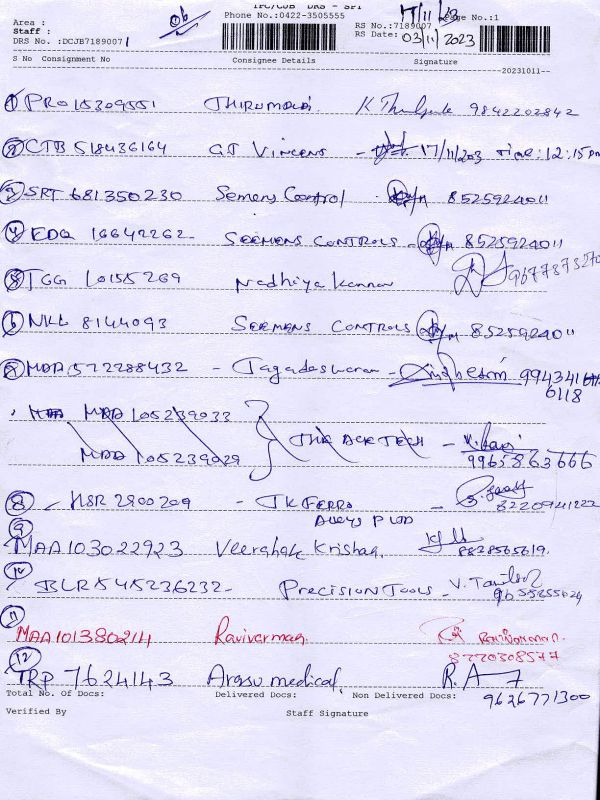 TPC/CJB DRS - SPT
Area :
Phone No.:0422-3505555
17/11/23
Page No.:1
Staff :
RS No.:7189007
DRS No. :DCJB7189007
RS Date: 03/11/2023
S No Consignment No Consignee Details Signature
--20231011--
1 PRO 15309551 THIRUMALAI 9842202842
2 CTB 518436164 GJ VINCENT - 17/11/203 Time: 12:15 pm
3 SRT 681350230 Semens Control 8525924011
4 EDQ 16642262 - SEEMENS CONTROLS - 8525924011
5 TGG 10155269 Nadhiya Kannan 9677873270
6 NKL 8144093 SEEMENS CONTROLS 8525924011
MAA 572288432 - Jagadeswaran - 994341
6118
MAA 105239033
MAA 105239029 THE ACE TECH - 9965863666
8 HSR 2900209 - JK FERRO 8220941222
ALLOYS P LTD
9
MAA 103022923 Veeraghala Krishan 8838565619
10 BLR 545236232 - PRECISION TOOLS - V. 9655255024
11
MAA 101380214 Ravivarman
8220308577
12
TRP 7624143 Arasu medical, R.A
Total No. Of Docs: Delivered Docs: Non Delivered Docs: 9626771300
Verified By Staff Signature